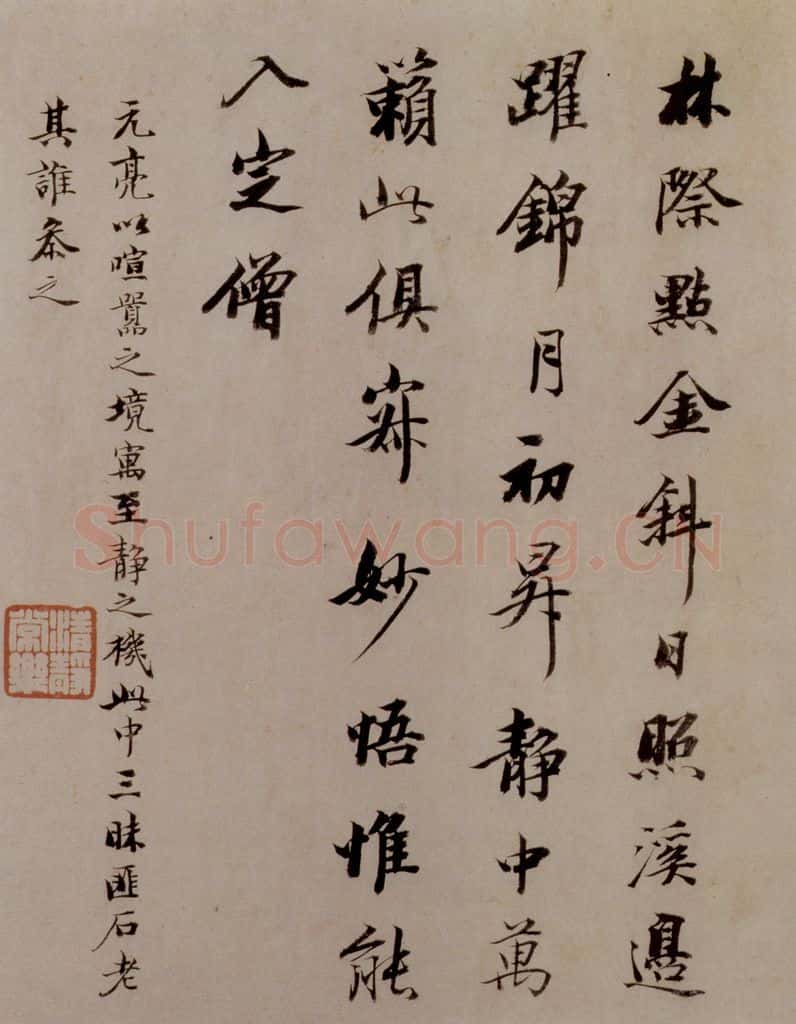 林際點金斜日照溪邊
躍錦月初昇靜中萬
籟此俱寂妙悟惟能
入定僧
元亮以喧囂之境寓至靜之機此中三昧匪石老
其誰叅之
清靜常樂
Shufawang.CN